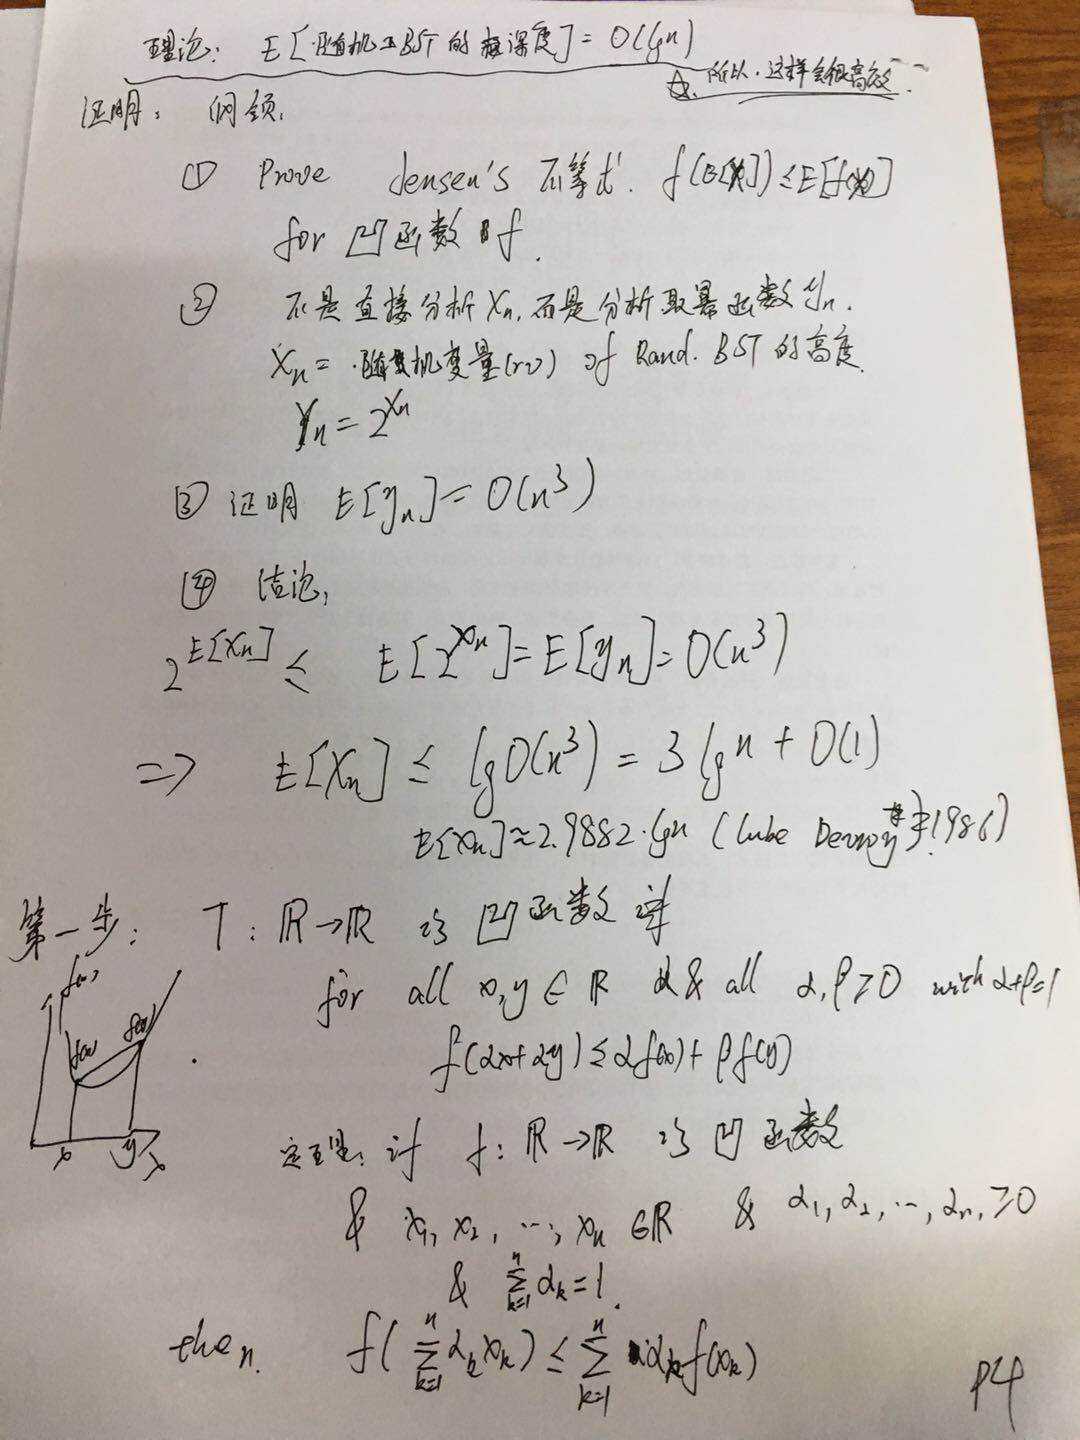 理论: E[随机BST的深度] = O(lgn)
☆. 所以, 这样会很高效.
证明: 纲领:
① Prove Jensen's 不等式. f(E[X]) ≤ E[f(X)]
for 凹函数 f.
② 不是直接分析Xn, 而是分析取幂函数yn.
Xn = 随机变量(rv) of Rand. BST的高度.
Yn = 2^Xn
③ 证明 E[yn] = O(n³)
④ 结论:
2^E[Xn] ≤ E[2^Xn] = E[yn] = O(n³)
=> E[Xn] ≤ lgO(n³) = 3lgn + O(1)
E[Xn] ≈ 2.9882·lgn (Luke Devroy 1986)
第一步: f: ℝ→ℝ 为凹函数
for all x,y ∈ ℝ & all α,β ≥ 0 with α+β=1
f(αx+αy) ≤ αf(x) + βf(y)
f(x)
f(x) f(y)
x y x
定理: if f: ℝ→ℝ 为凹函数
& x₁, x₂, ..., xn ∈ ℝ & α₁, α₂, ..., αn, ≥0
& ∑_{k=1}^{n} αk = 1.
then. f(∑_{k=1}^{n} αk xk) ≤ ∑_{k=1}^{n} αk f(xk)
P4